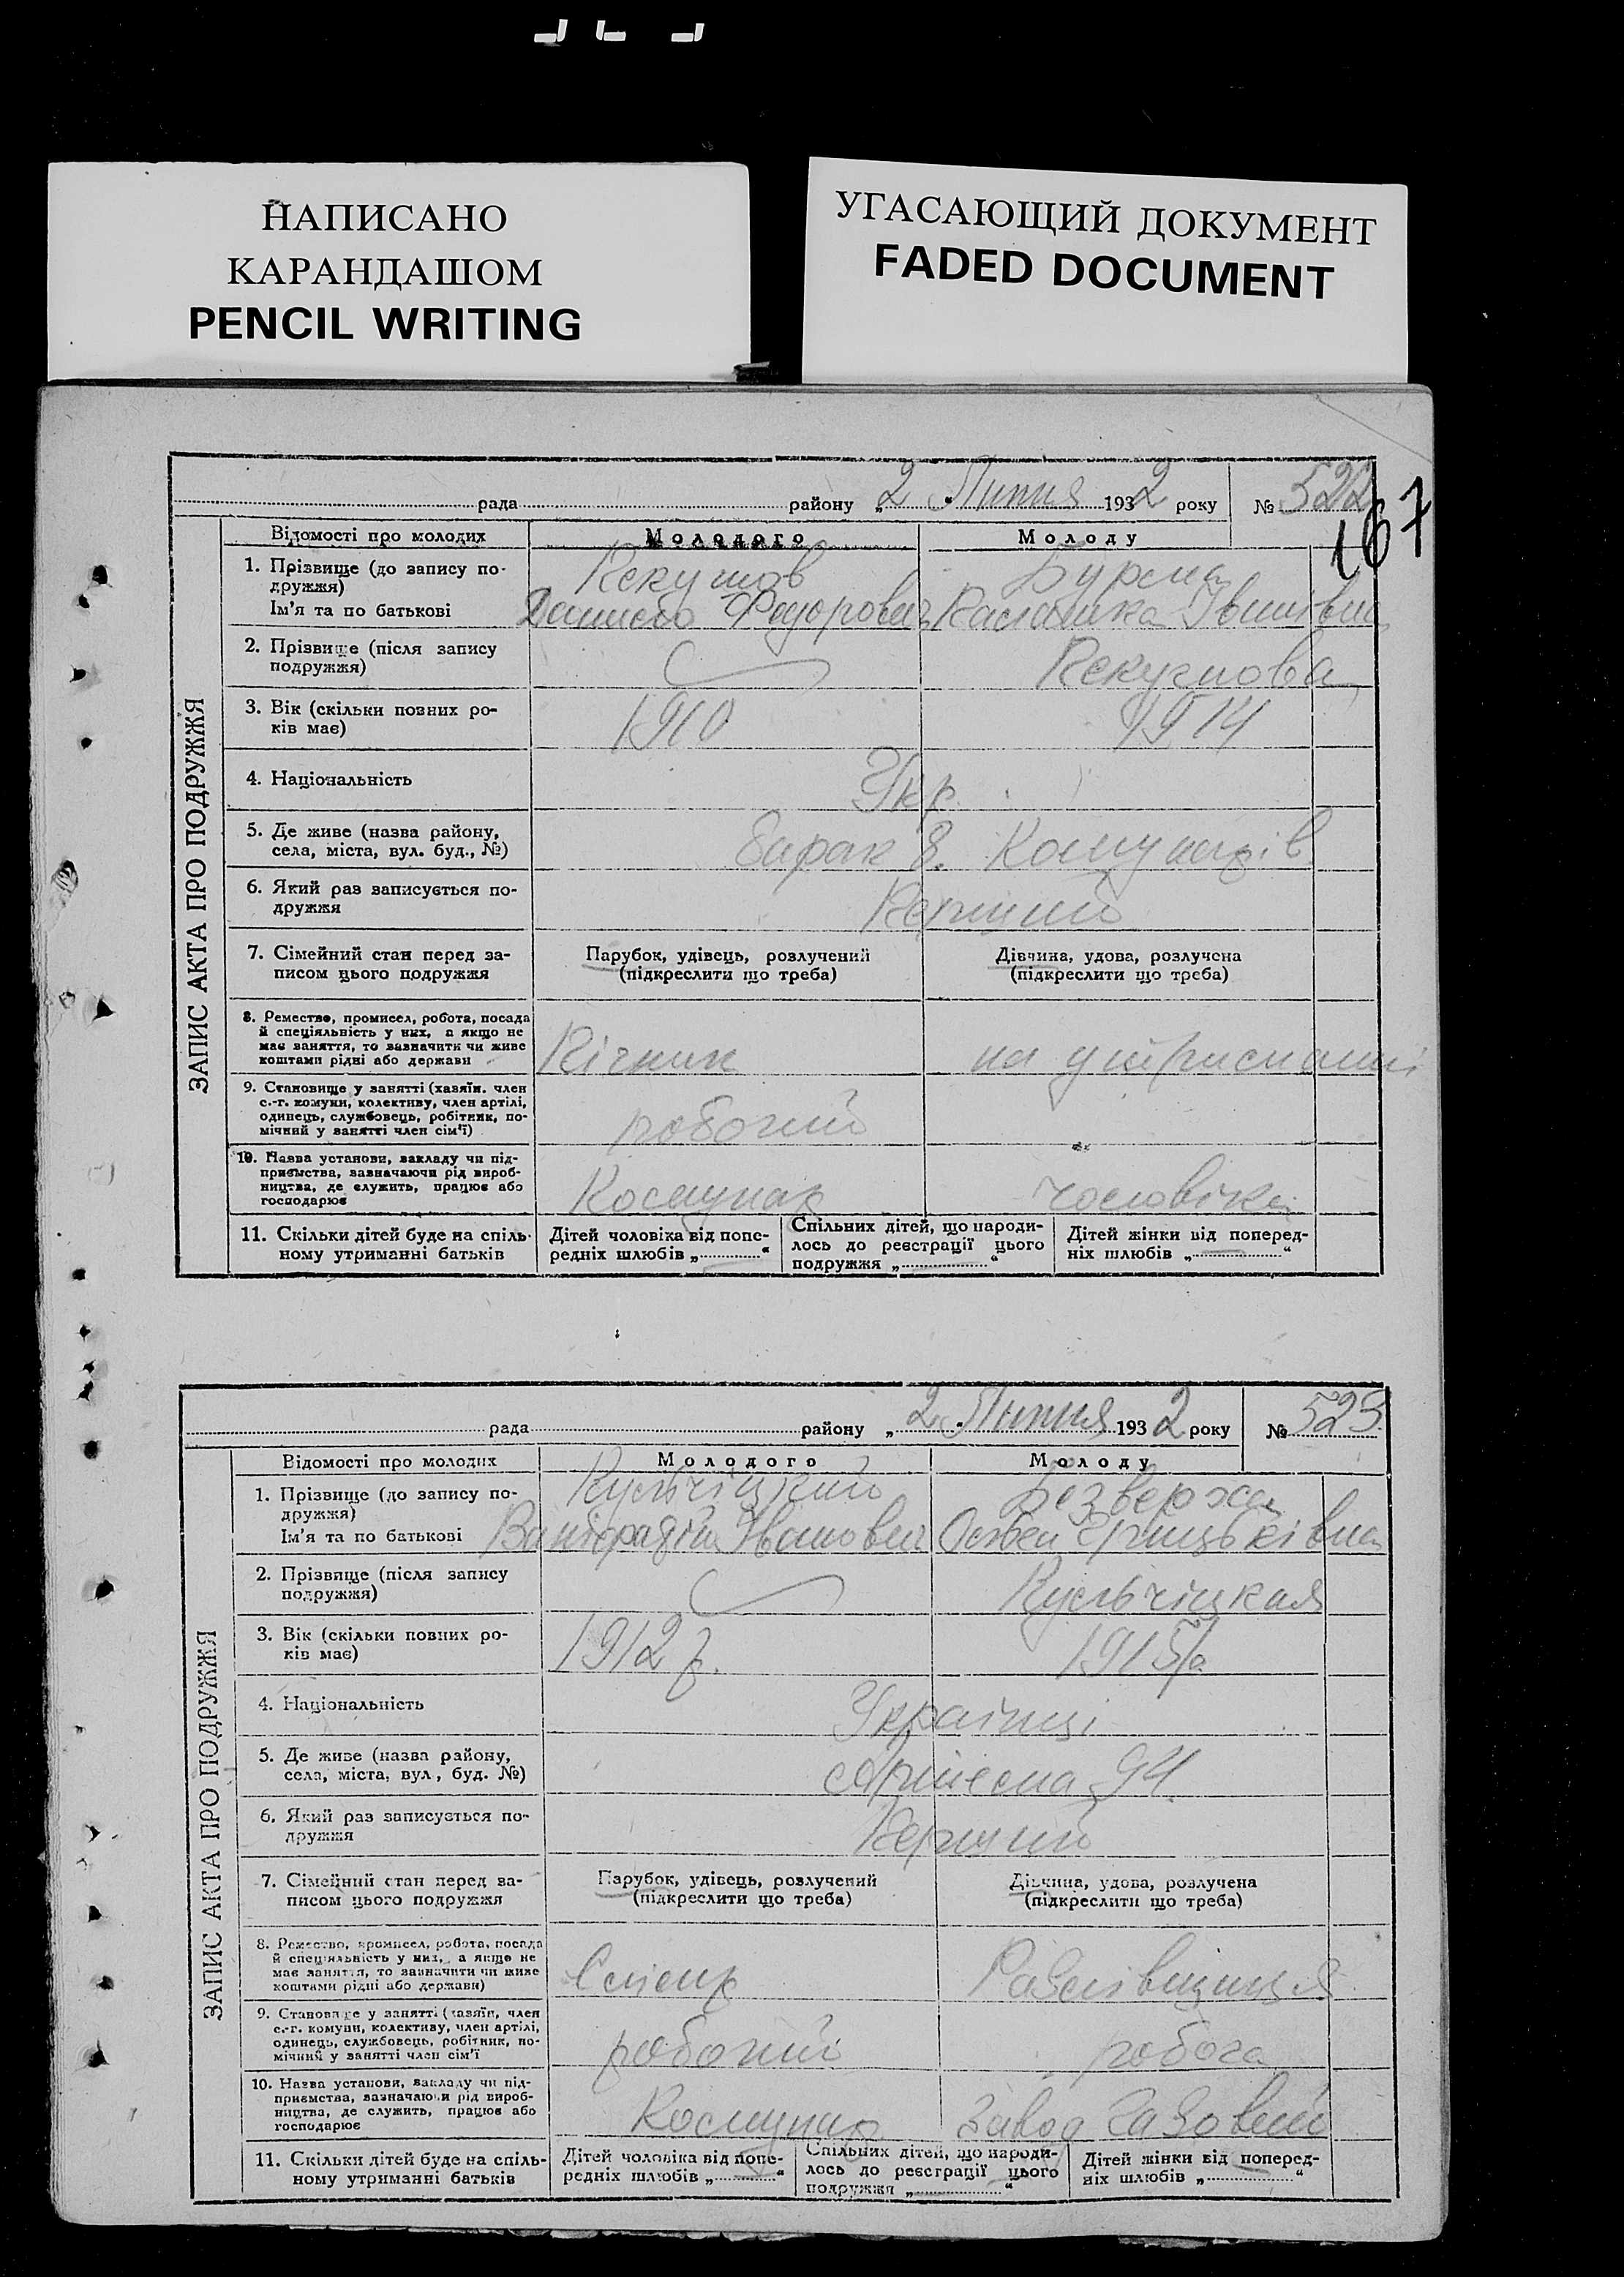 НАПИСАНО
КАРАНДАШОМ
PENCIL WRITING
УГАСАЮЩИЙ ДОКУМЕНТ
FADED DOCUMENT
рада району „2“ Липня 1932 року № 522
167
ЗАПИС АКТА ПРО ПОДРУЖЖЯ
Відомості про молодих Молодого Молоду
1. Прізвище (до запису по-
дружжя)
Ім'я та по батькові
Бурма
Данило Федорович Іванівна
2. Прізвище (після запису
подружжя)
3. Вік (скільки повних ро-
ків має)
1910 1914
4. Національність
Укр.
5. Де живе (назва району,
села, міста, вул. буд., №)
барак 8. Комунарів
6. Який раз записується по-
дружжя
Перший
7. Сімейний стан перед за-
писом цього подружжя
Парубок, удівець, розлучений
(підкреслити що треба)
Дівчина, удова, розлучена
(підкреслити що треба)
8. Ремество, промисел, робота, посада
й спеціяльність у них, а якщо не
має заняття, то зазначити чи живе
коштами рідні або держави
Пічник на утриманні
9. Становище у занятті (хазяїн. член
с.-г. комуни, колективу, член артілі,
одинець, службовець, робітник, по-
мічний у занятті член сім'ї)
робочий
10. Назва установи, закладу чи під-
приємства, зазначаючи рід вироб-
ництва, де служить, працює або
господарює
Комунар чоловіка
11. Скільки дітей буде на спіль-
ному утриманні батьків
Дітей чоловіка від попе-
редніх шлюбів „ “
Спільних дітей, що народи-
лось до реєстрації цього
подружжя „ “
Дітей жінки від поперед-
ніх шлюбів „ “
рада району „2 Липня 1932 року № 523
ЗАПИС АКТА ПРО ПОДРУЖЖЯ
Відомості про молодих Молодого Молоду
1. Прізвище (до запису по-
дружжя)
Ім'я та по батькові
Кульчіцкий Безверха
Іванович Грицьківна
2. Прізвище (після запису
подружжя)
Кульчіцкая
3. Вік (скільки повних ро-
ків має)
1912 р. 1915 р.
4. Національність
Українці
5. Де живе (назва району,
села, міста, вул., буд. №)
Артьома 94.
6. Який раз записується по-
дружжя
Перший
7. Сімейний стан перед за-
писом цього подружжя
Парубок, удівець, розлучений
(підкреслити що треба)
Дівчина, удова, розлучена
(підкреслити що треба)
8. Ремество, промисел, робота, посада
й спеціяльність у них, а якщо не
має заняття, то зазначити чи живе
коштами рідні або держави)
9. Становище у занятті (хазяїн, член
с.-г. комуни, колективу, член артілі,
одинець, службовець, робітник, по-
мічний у занятті член сім'ї
робочий робоча
10. Назва установи, закладу чи під-
приємства, зазначаючи рід вироб-
ництва, де служить, працює або
господарює
Комунар завод
11. Скільки дітей буде на спіль-
ному утриманні батьків
Дітей чоловіка від попе-
редніх шлюбів „ “
Спільних дітей, що народи-
лось до реєстрації цього
подружжя „ “
Дітей жінки від поперед-
ніх шлюбів „ “